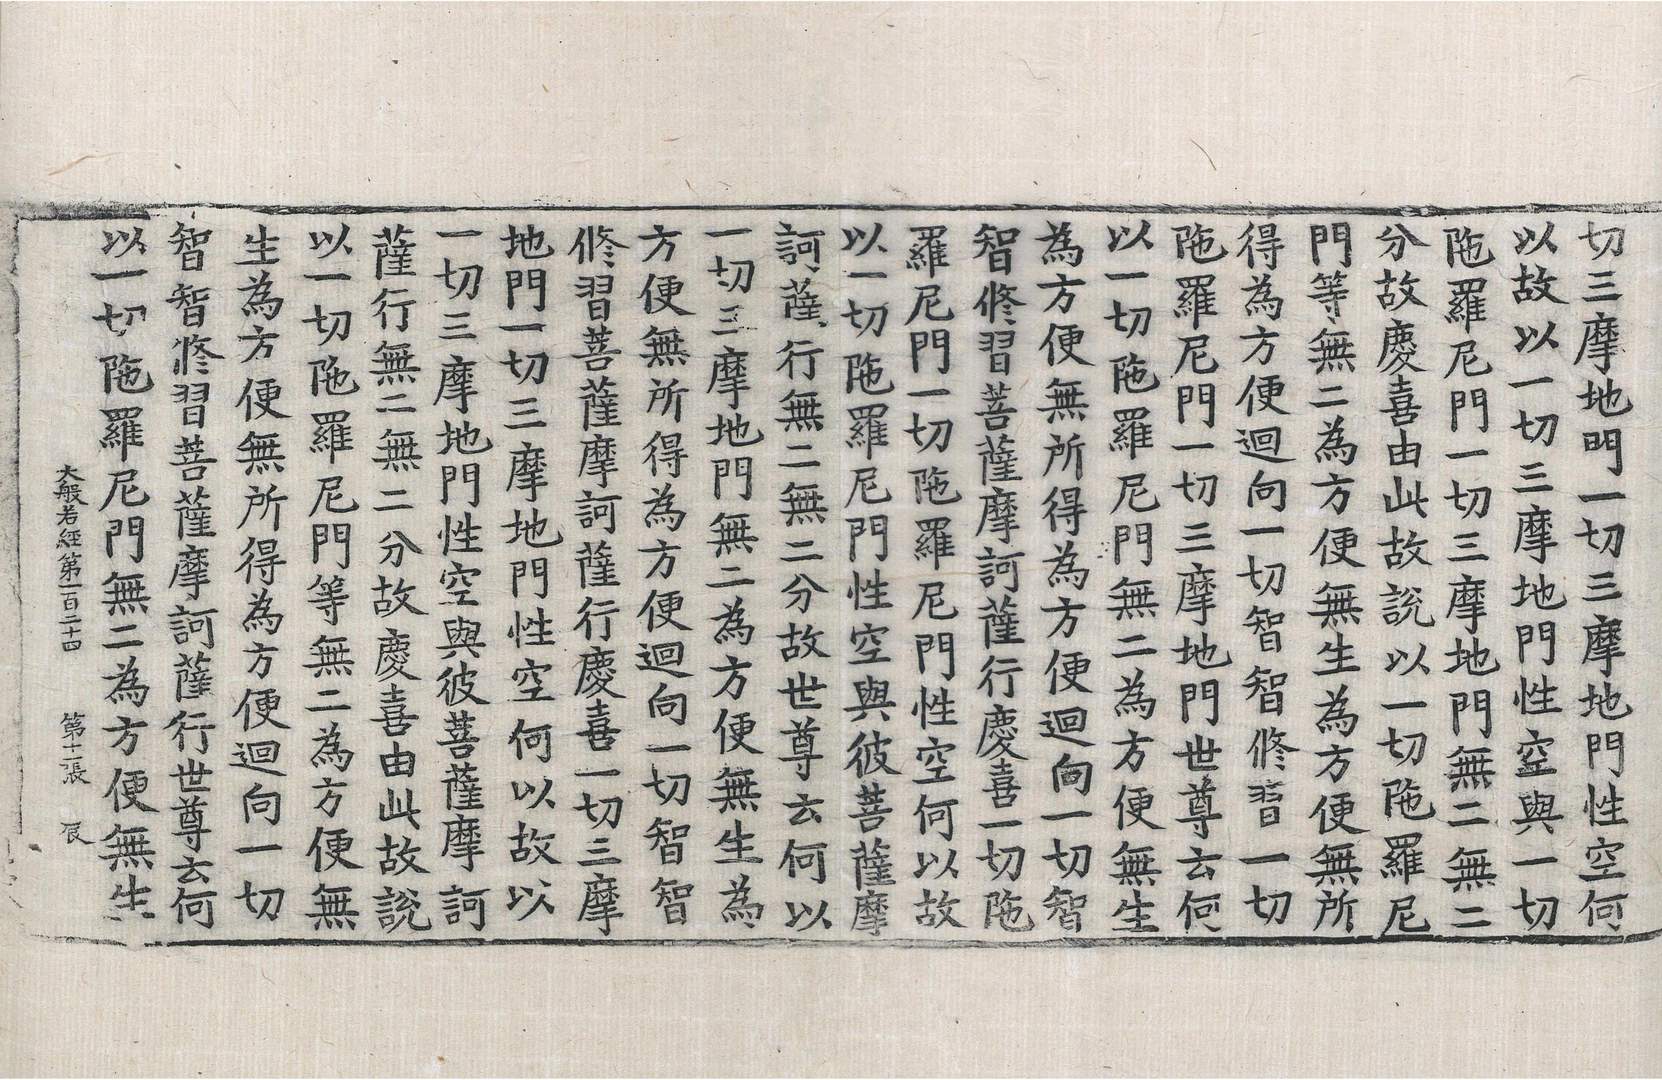 切三摩地門一切三摩地門性空何
以故以一切三摩地門性空與一切
陁羅尼門一切三摩地門無二無二
分故慶喜由此故說以一切陁羅尼
門等無二為方便無生為方便無所
得為方便迴向一切智智修習一切
陁羅尼門一切三摩地門世尊云何
以一切陁羅尼門無二為方便無生
為方便無所得為方便迴向一切智
智修習菩薩摩訶薩行慶喜一切陁
羅尼門一切陁羅尼門性空何以故
以一切陁羅尼門性空與彼菩薩摩
訶薩行無二無二分故世尊云何以
一切三摩地門無二為方便無生為
方便無所得為方便迴向一切智智
修習菩薩摩訶薩行慶喜一切三摩
地門一切三摩地門性空何以故以
一切三摩地門性空與彼菩薩摩訶
薩行無二無二分故慶喜由此故說
以一切陁羅尼門等無二為方便無
生為方便無所得為方便迴向一切
智智修習菩薩摩訶薩行世尊云何
以一切陁羅尼門無二為方便無生
大般若經第一百二十四 第十二張 宸